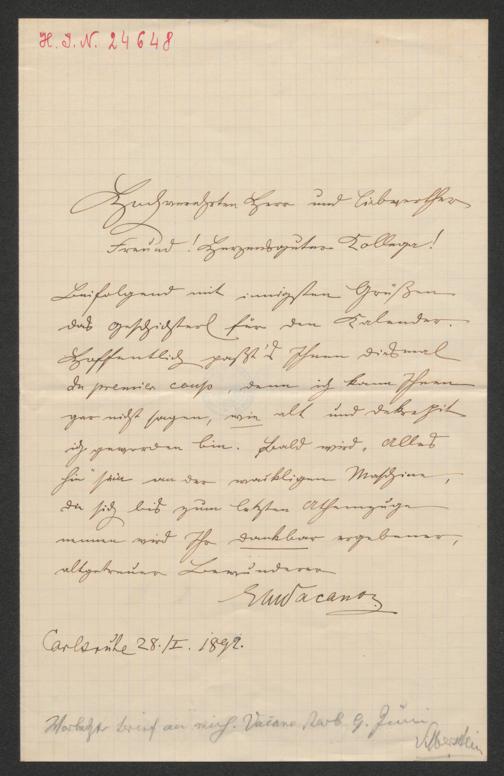 H. I. N. 24648
Hochverehrter Herr und liebwerther
Freund! Herzensguter Kollega!
Beifolgend mit innigsten Grüßen
das Geschichterl für den Kalender.
Hoffentlich paßt's Ihnen diesmal
du premier coup, denn ich kann Ihnen
gar nicht sagen, wie alt und dekrepit
ich geworden bin. Bald wird, Alles
hin sein an der Maschine,
die sich bis zum letzten Athemzuge
nennen wird Ihr dankbar ergebener,
altgetreuer Bewunderer
EMVacano
Carlsruhe 28./I. 1892.
Vorletzter Brief an mich. Vacano starb 9. Juni
Silberstein